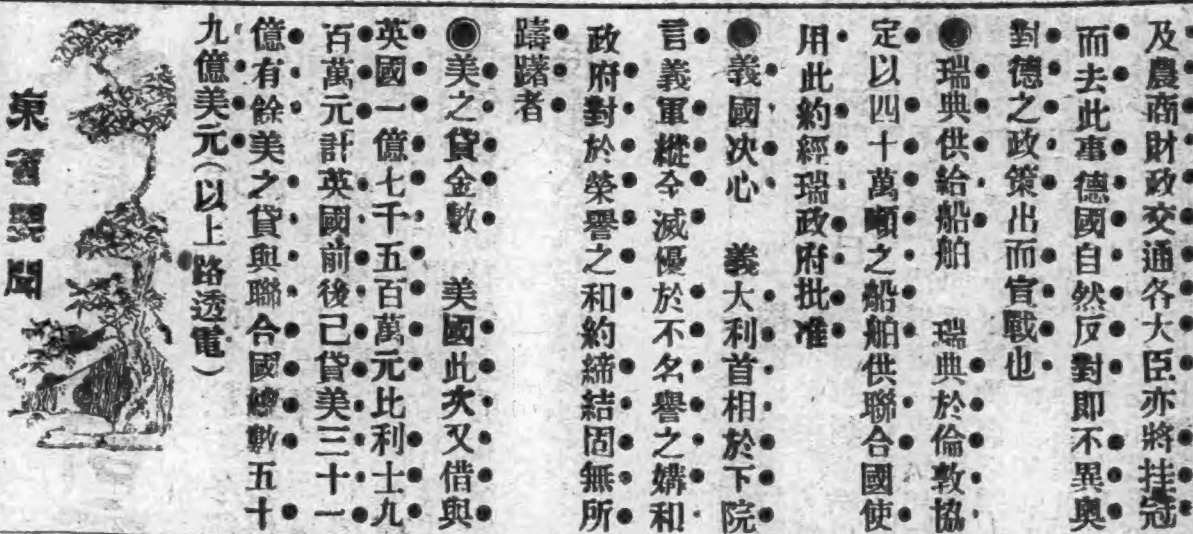 及農商財政交通各大臣亦將挂冠
而去此事德國自然反對即不異奧
對德之政策出而宣戰也
◉瑞典供給船舶　瑞典於倫敦協
定以四十萬噸之船舶供聯合國使
用此約經瑞政府批准
◉義國决心　義大利首相於下院
言義軍縱令滅優於不名譽之媾和
政府對於榮譽之和約締結固無所
躊躇者
◉美之貸金數　美國此次又借與
英國一億七千五百萬元比利士九
百萬元計英國前後已貸美三十一
億有餘美之貸與聯合國總數五十
九億美元(以上路透電)
東省要聞